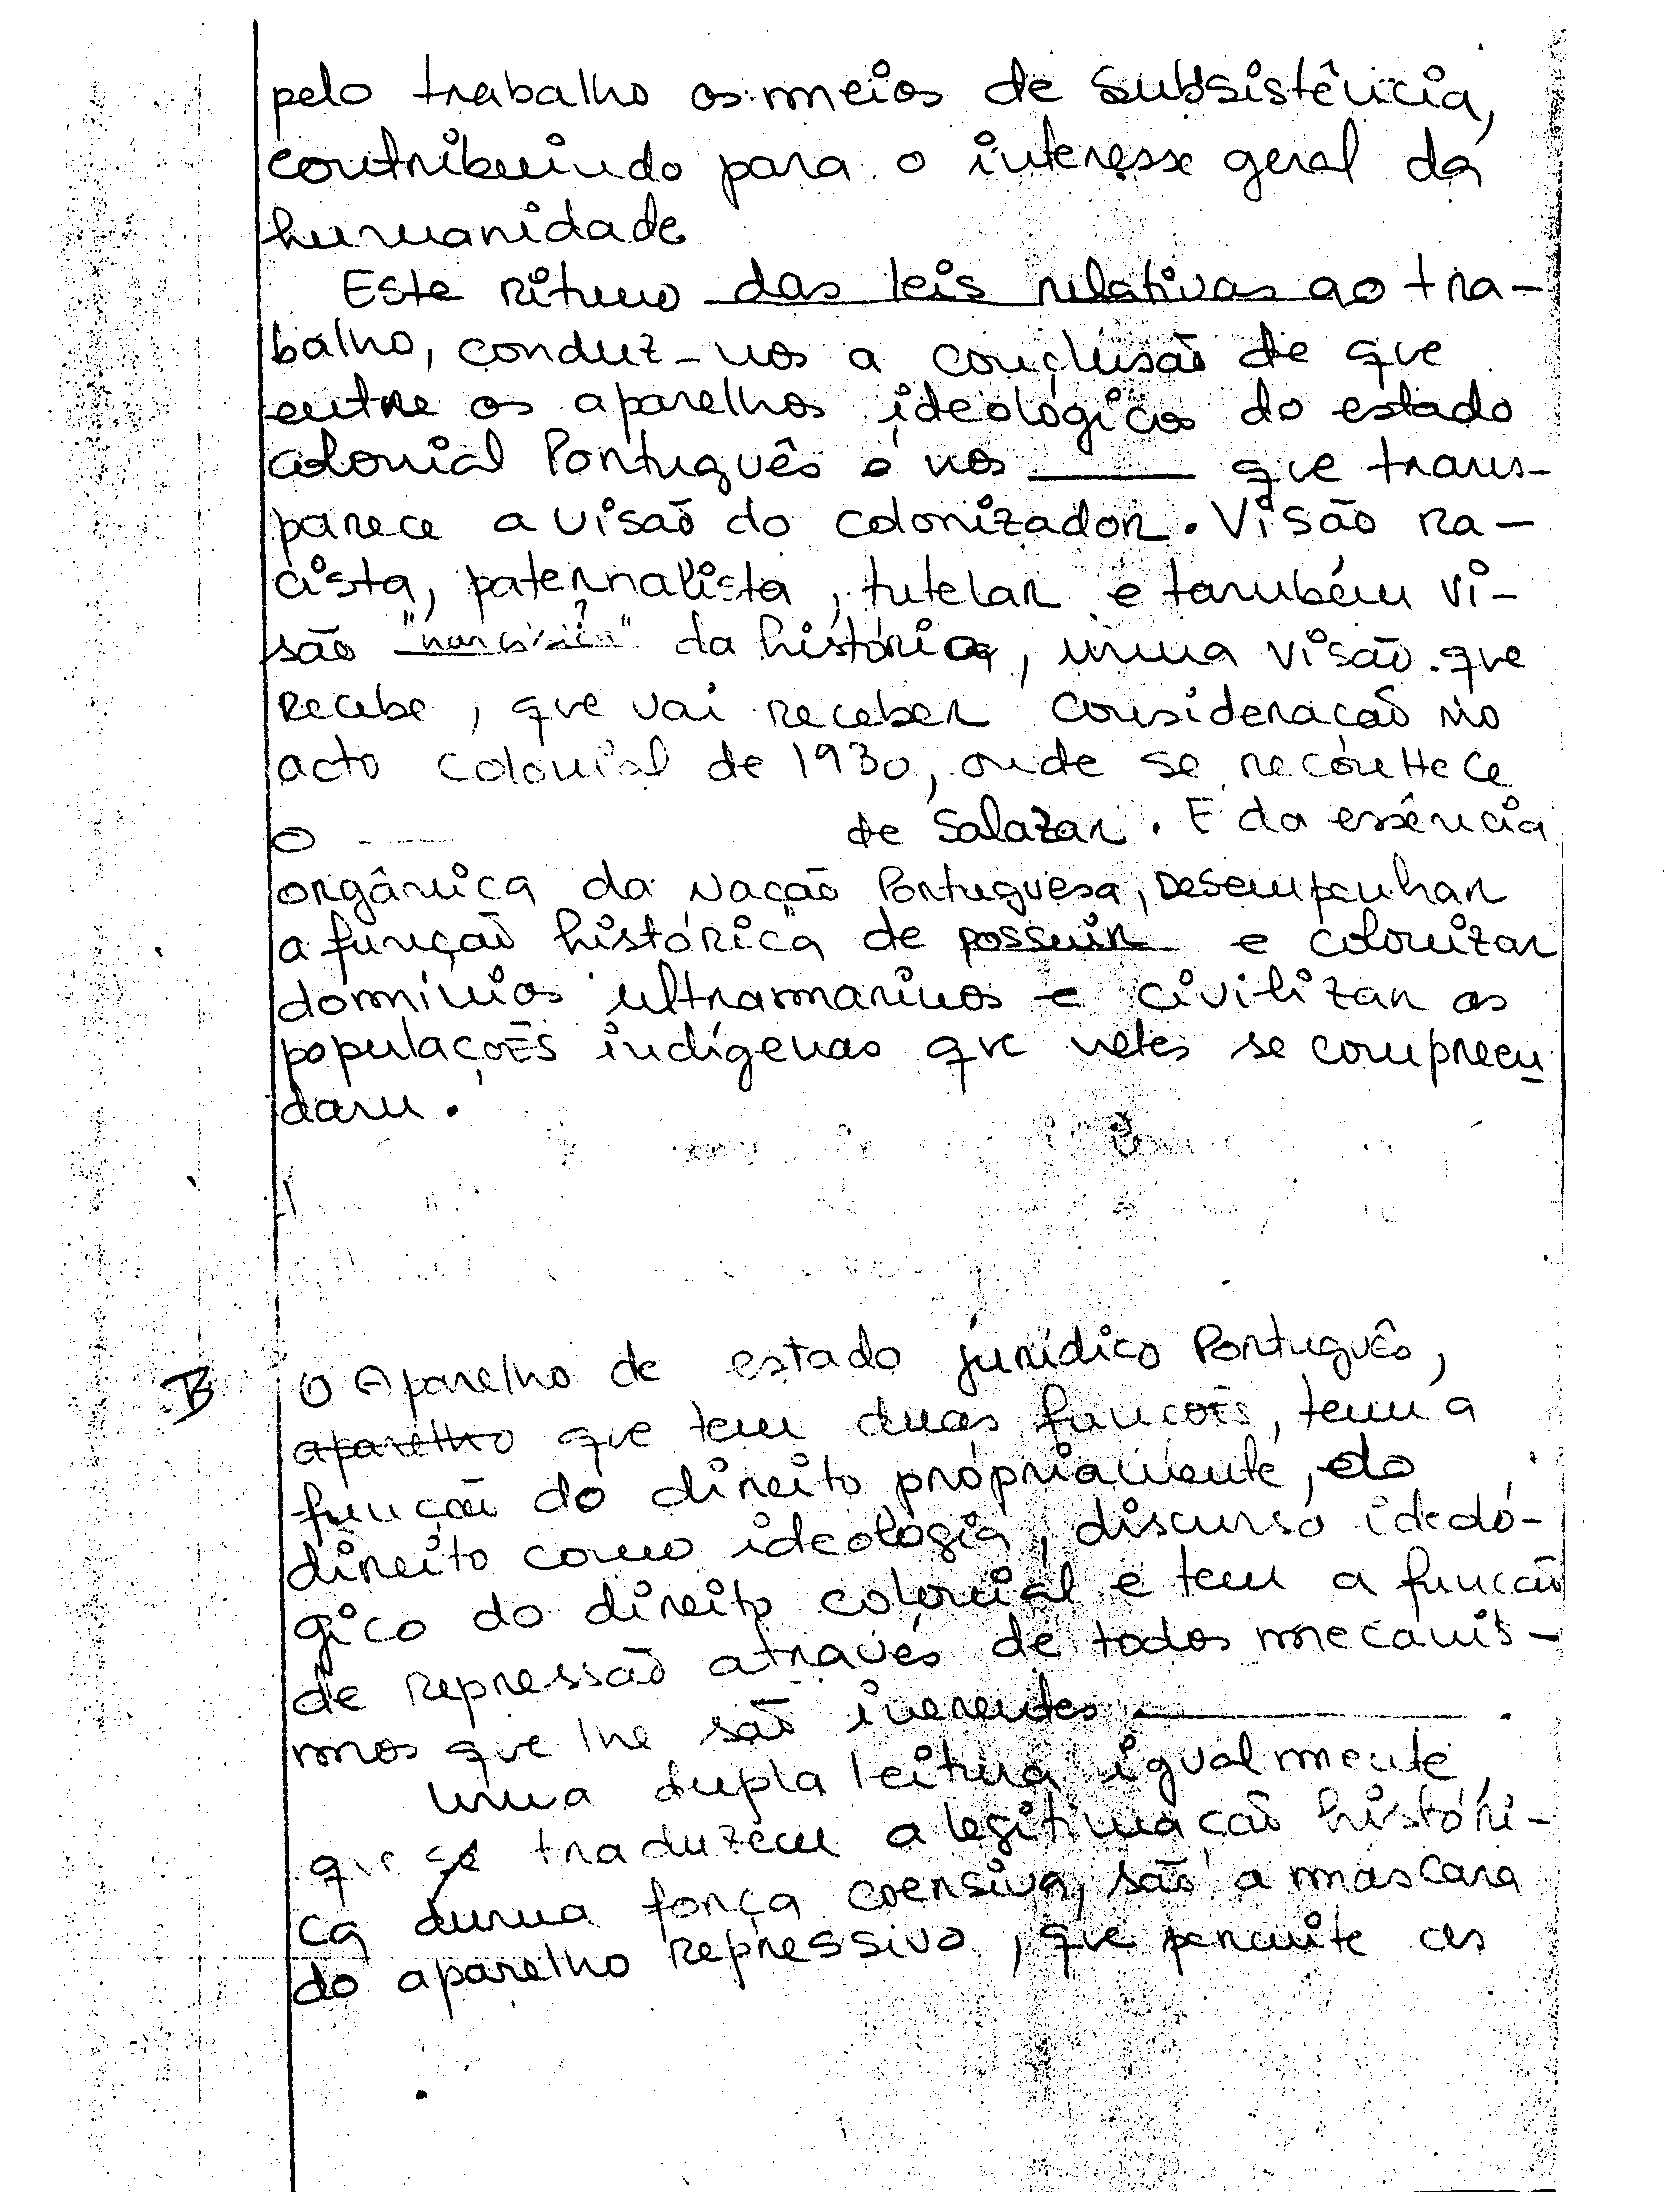 pelo trabalho os meios de subsistência,
contribuindo para o interesse geral da
humanidade
Este ritmo das leis relativas ao tra-
balho, conduz-nos a conclusão de que
entre os aparelhos ideológicos do estado
colonial Português é nos ______ que trans-
parece a visão do colonizador. Visão ra-
cista, paternalista, tutelar e também vi-
são da história, uma visão que
recebe, que vai receber consideração no
acto colonial de 1930, onde se reconhece
o de Salazar. E da essência
orgânica da Nação Portuguesa, desempenhar
a função histórica de possuir e colonizar
domínios ultramarinos e civilizar as
populações indígenas que neles se compreen
dam.
B O Aparelho de estado jurídico Português,
aparelho que tem duas funções, tem a
função do direito própriamente, do
direito como ideologia, discurso ideoló-
gico do direito colonial e tem a função
de repressão através de todos mecanis-
mos que lhe são inerentes ______.
Uma dupla leitura igualmente,
que se traduzem a legitimação históri-
ca duma força coersiva, são a mascara
do aparelho repressivo, que permite as